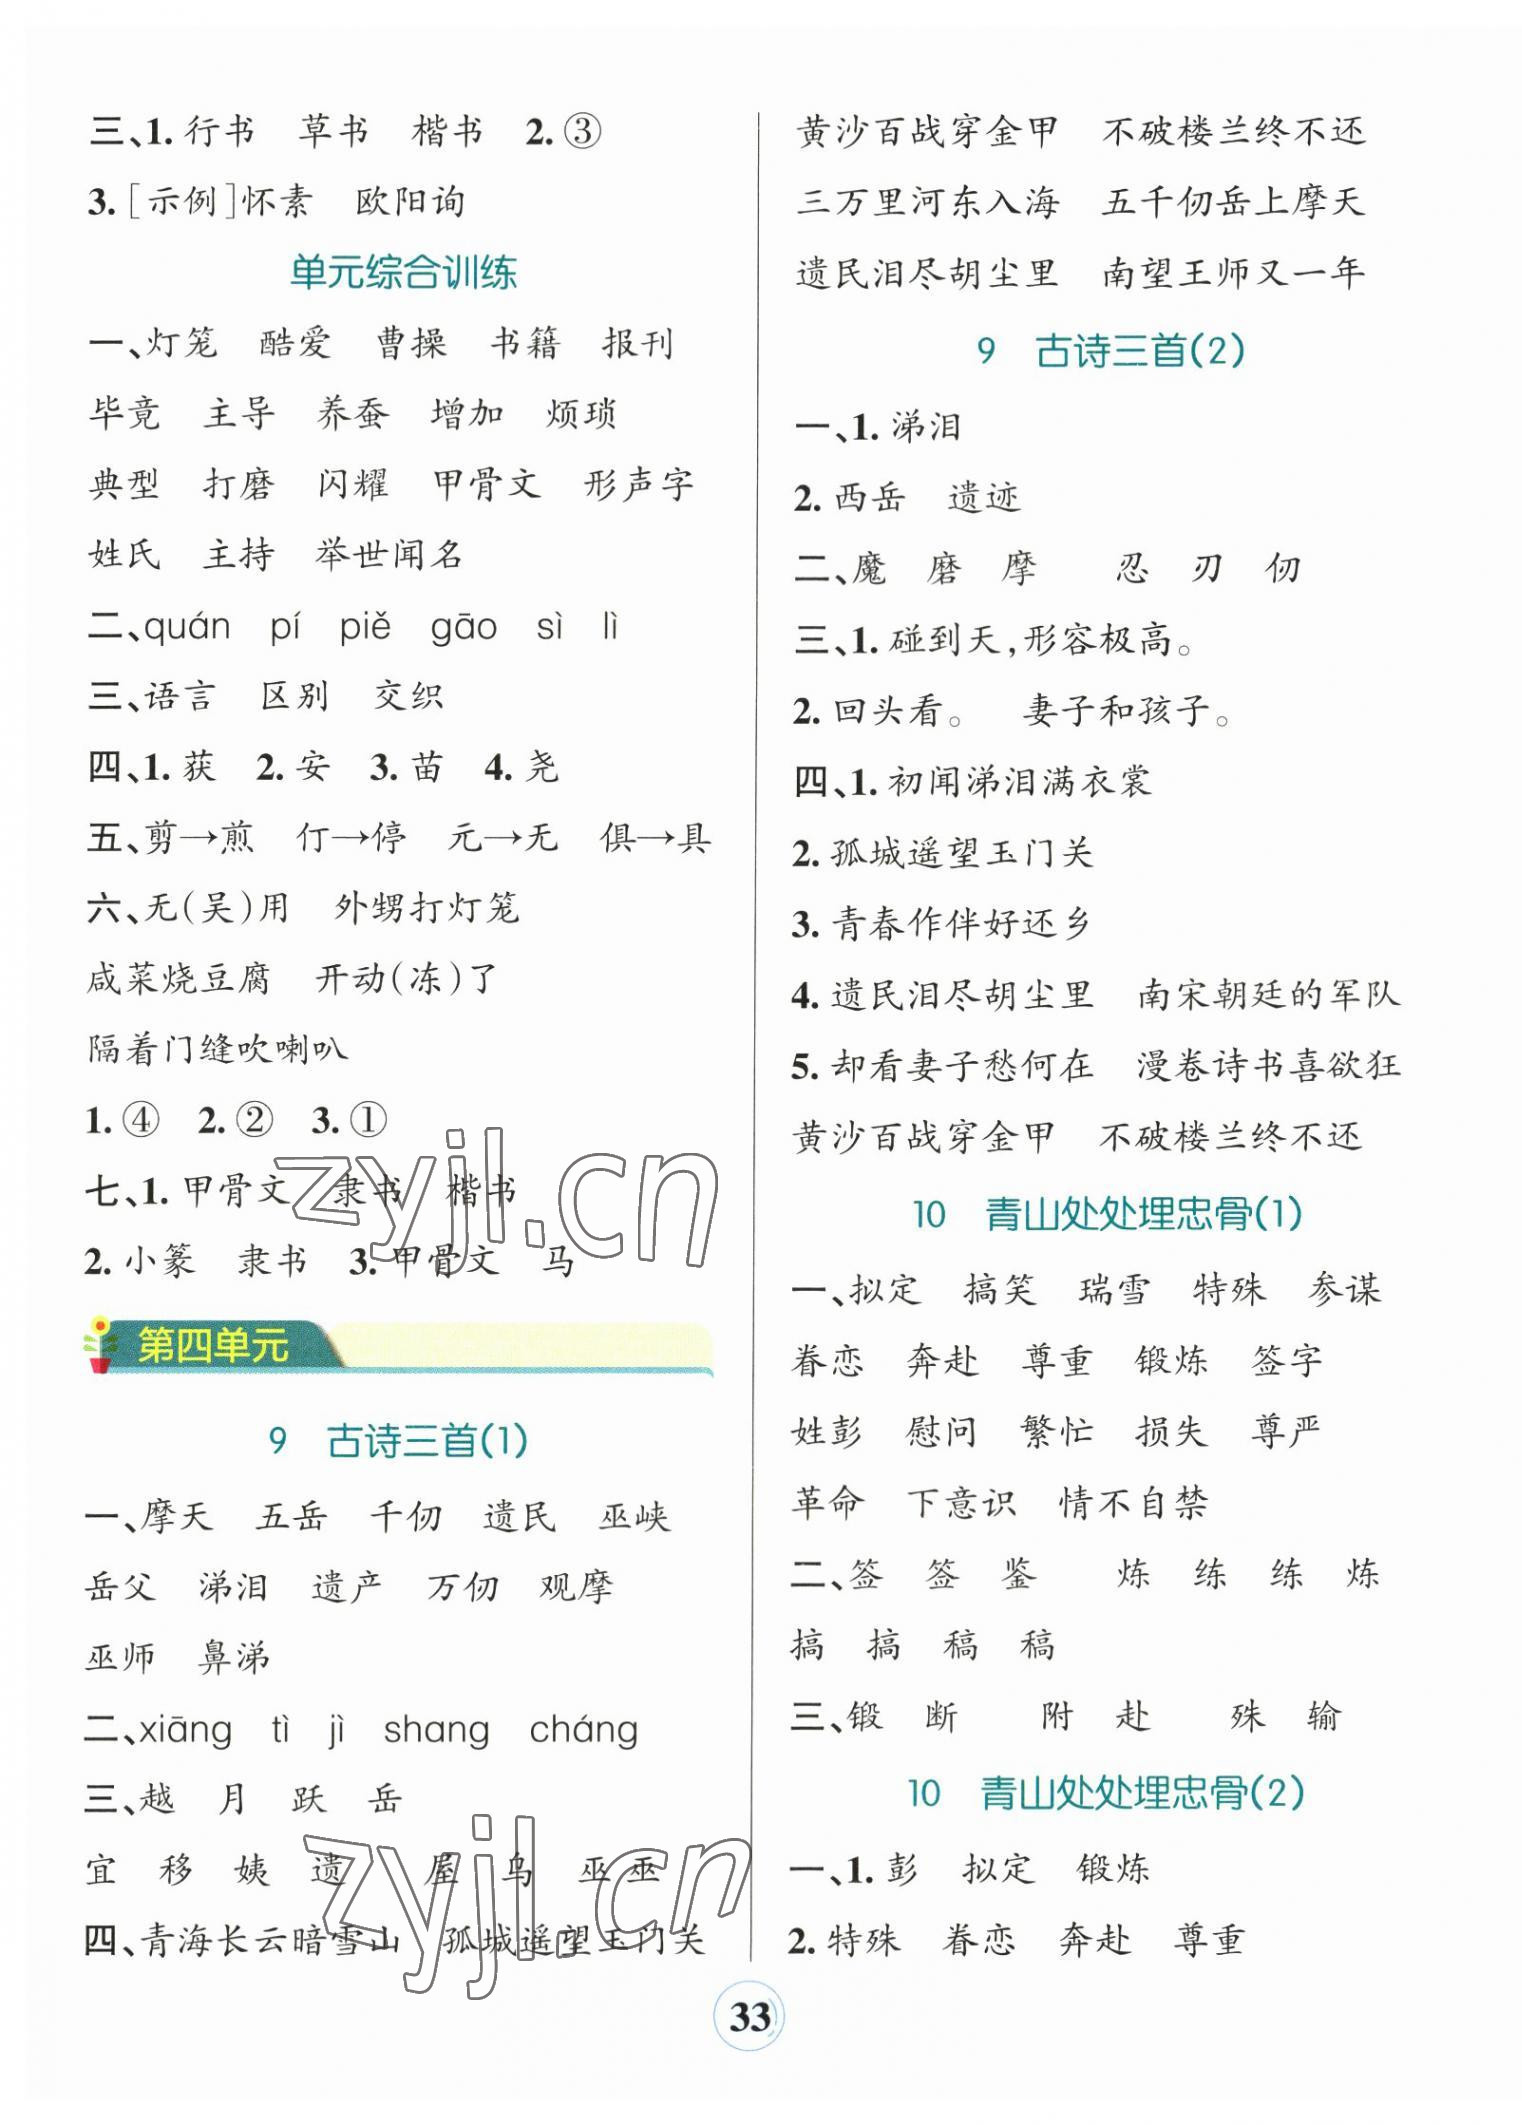 三、1. 行书 草书 楷书 2. ③
3. [示例]怀素 欧阳询
单元综合训练
一、灯笼 酷爱 曹操 书籍 报刊
毕竟 主导 养蚕 增加 烦琐
典型 打磨 闪耀 甲骨文 形声字
姓氏 主持 举世闻名
二、quán pí piě gāo sì lì
三、语言 区别 交织
四、1. 获 2. 安 3. 苗 4. 尧
五、剪→煎 仃→停 元→无 俱→具
六、无(吴)用 外甥打灯笼
咸菜烧豆腐 开动(冻)了
隔着门缝吹喇叭
1. ④ 2. ② 3. ①
七、1. 甲骨文 隶书 楷书
2. 小篆 隶书 3. 甲骨文 马
第四单元
9 古诗三首(1)
一、摩天 五岳 千仞 遗民 巫峡
岳父 涕泪 遗产 万仞 观摩
巫师 鼻涕
二、xiāng tì jì shang cháng
三、越 月 跃 岳
宜 移 姨 遗 屋 乌 巫 巫
四、青海长云暗雪山 孤城遥望玉门关
黄沙百战穿金甲 不破楼兰终不还
三万里河东入海 五千仞岳上摩天
遗民泪尽胡尘里 南望王师又一年
9 古诗三首(2)
一、1. 涕泪
2. 西岳 遗迹
二、魔 磨 摩 忍 刃 仞
三、1. 碰到天,形容极高。
2. 回头看。 妻子和孩子。
四、1. 初闻涕泪满衣裳
2. 孤城遥望玉门关
3. 青春作伴好还乡
4. 遗民泪尽胡尘里 南宋朝廷的军队
5. 却看妻子愁何在 漫卷诗书喜欲狂
黄沙百战穿金甲 不破楼兰终不还
10 青山处处埋忠骨(1)
一、拟定 搞笑 瑞雪 特殊 参谋
眷恋 奔赴 尊重 锻炼 签字
姓彭 慰问 繁忙 损失 尊严
革命 下意识 情不自禁
二、签 签 鉴 炼 练 练 炼
搞 搞 稿 稿
三、锻 断 附 赴 殊 输
10 青山处处埋忠骨(2)
一、1. 彭 拟定 锻炼
2. 特殊 眷恋 奔赴 尊重
33
zyjl.cn
zyjl.cn